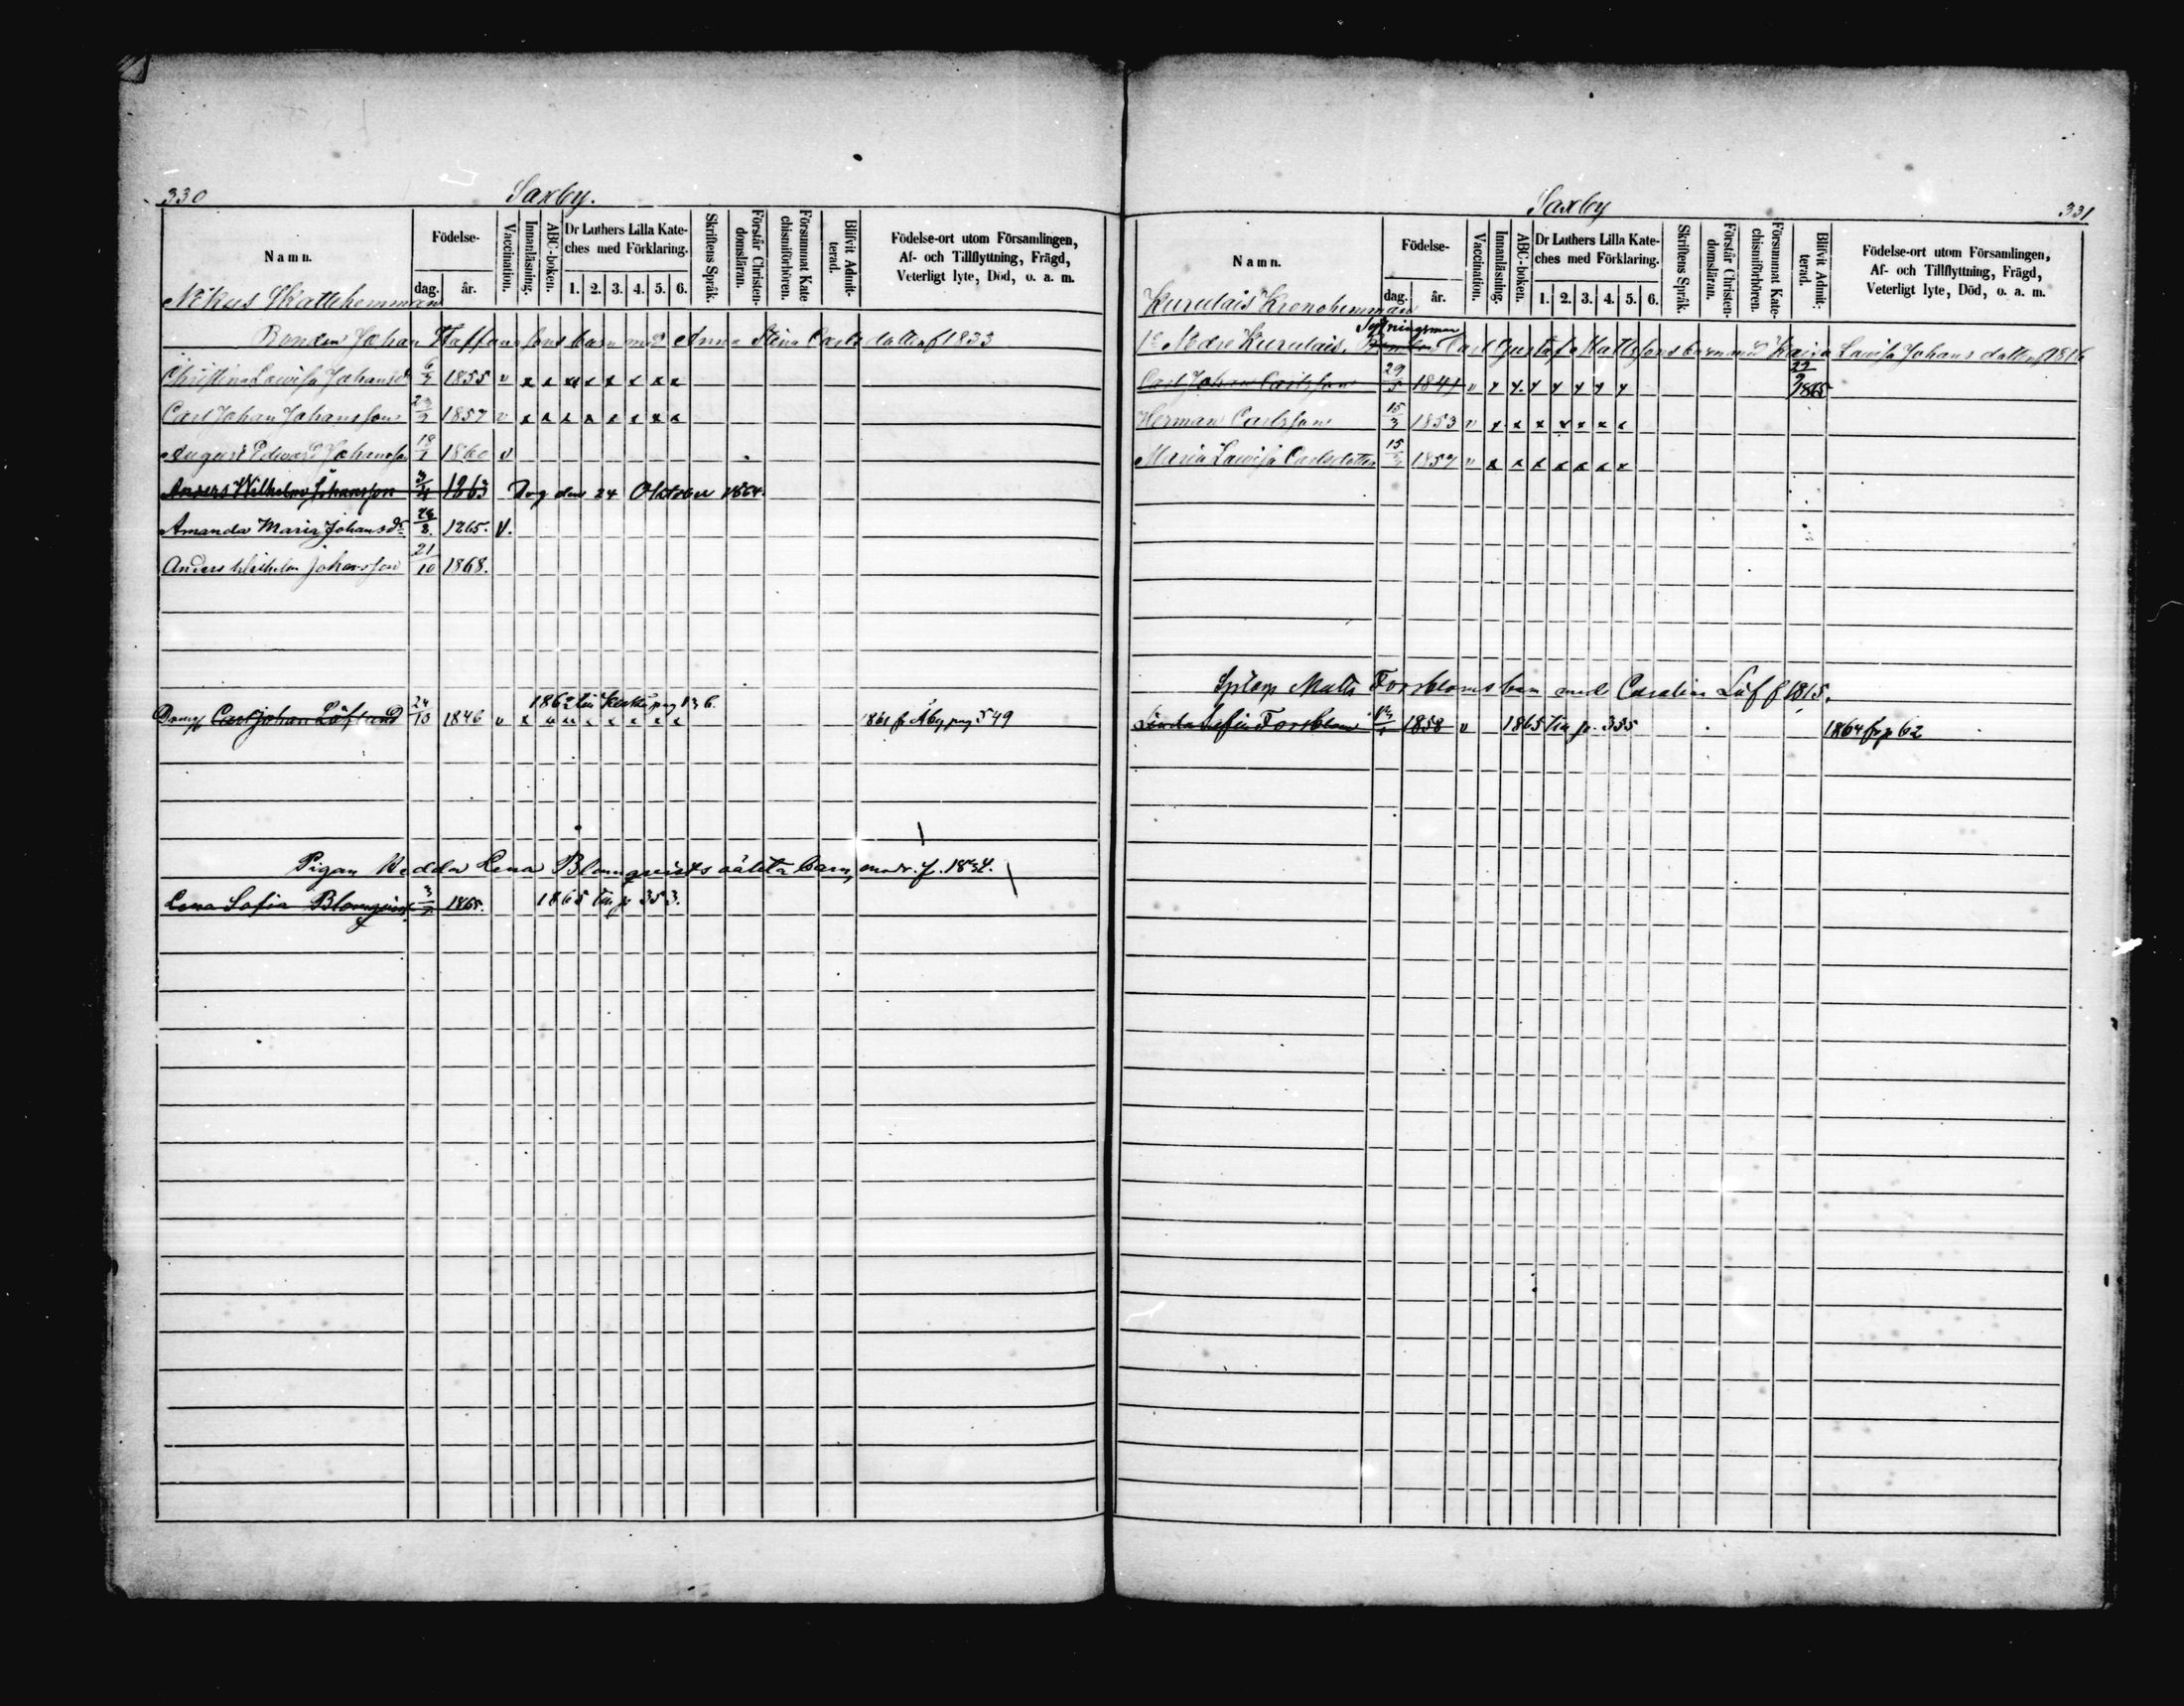 330
Saxby.
Namn.
Födelse-
dag. år.
Vaccination.
Innanläsning.
ABC-boken.
Dr Luthers Lilla Kate-
ches med Förklaring.
1. 2. 3. 4. 5. 6.
Skriftens Språk.
Förstår Christen-
domsläran.
Försummat Kate
chismiförhören.
Blifvit Admit-
terad.
Födelse-ort utom Församlingen,
Af- och Tillflyttning, Frägd,
Veterligt lyte, Död, o. a. m.
Nikus Skattehemman
Bonden Johan Staffanssons barn md Anna Stina Carlsdotter f 1833
Christina Lovisa Johansdr 6/3 1855 v x x x x x x x x
Carl Johan Johansson 1857 v x x x x x x x x
August Edward Johansson 1860 v
Anders Wilhelm Johansson 3/4 1863 Dog den 24 Oktober 1864.
Amanda Maria Johansdr 28/8. 1865. V.
Anders Wilhelm Johansson 21/10 1868.
1862 till pag 136.
Dreng Carl Johan Löflund 24/10 1846 v x x x x x x x x 1861 fr Åby pag 549
Pigan Hedda Lena Blomqvists oäkta barn, modr. f. 1834.
Lena Sofia Blomqvist 1865. 1865 till p 353.
Saxby
331
Namn.
Födelse-
dag. år.
Vaccination.
Innanläsning.
ABC-boken.
Dr Luthers Lilla Kate-
ches med Förklaring.
1. 2. 3. 4. 5. 6.
Skriftens Språk.
Förstår Christen-
domsläran.
Försummat Kate-
chismiförhören.
Blifvit Admit:
terad.
Födelse-ort utom Församlingen,
Af- och Tillflyttning, Frägd,
Veterligt lyte, Död, o. a. m.
Kurulais Kronohemman
Sytningsman
1o Nedre Kurulais. Bonden Carl Gustaf Mattssons barn md Kaisa Lovisa Johansdotter f 1816
Carl Johan Carlsson 29/5 1847 v x x x x x x x 22/9 1865
Herman Carlsson 15/3 1853 v x x x x x x x
Maria Lovisa Carlsdotter 1857 v x x x x x x x
Matts Forsbloms barn med Carolina Löf f 1815.
Sofia Forsblom 1858 v 1865 till p. 335 1864 fr p 62